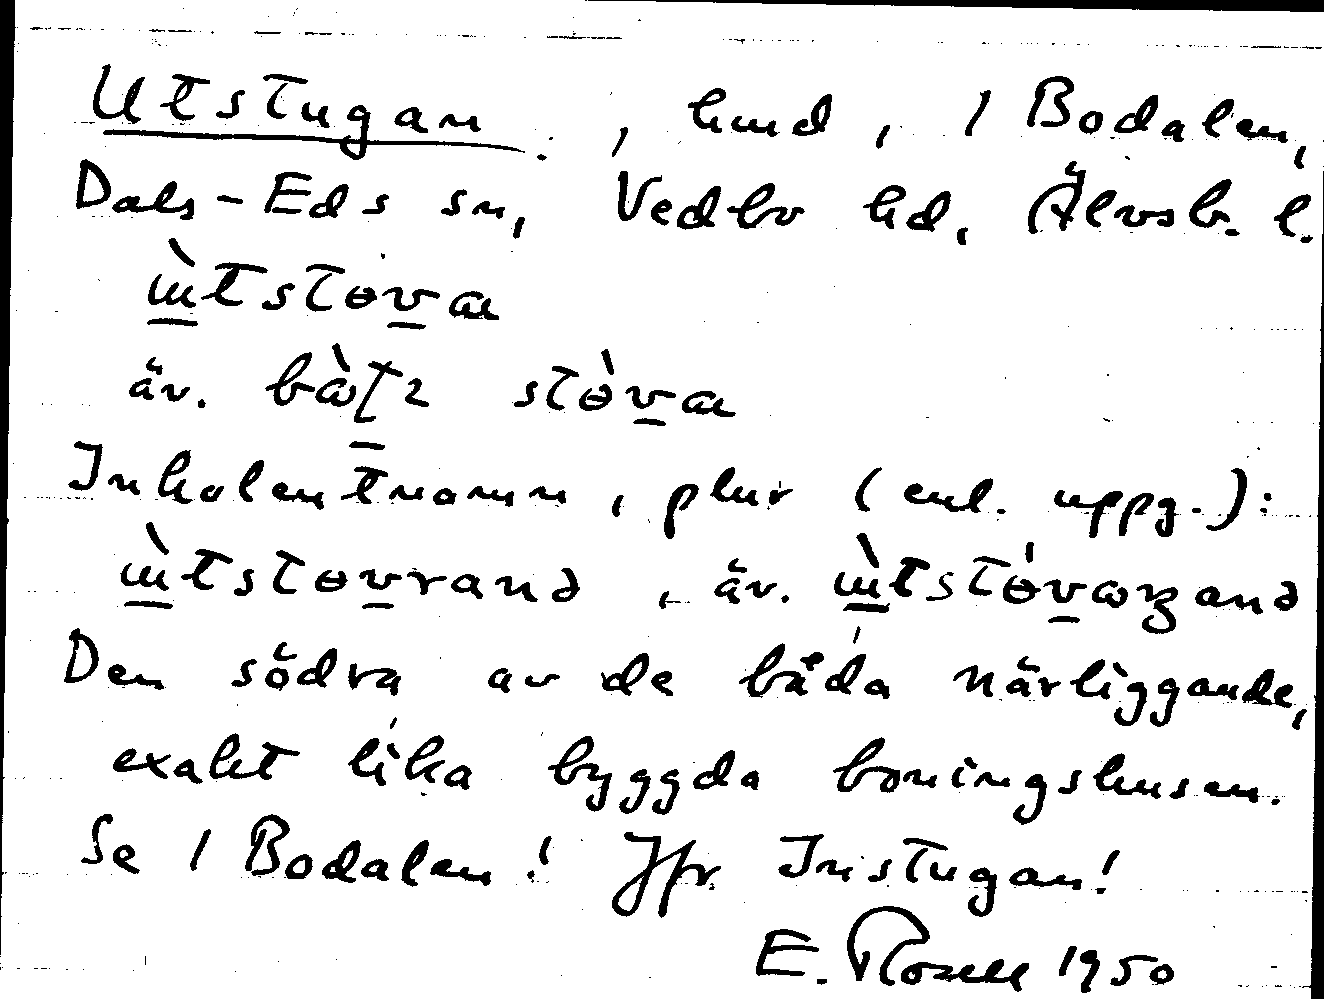 Utstugan., hmd, 1 Bodalen,
Dals-Eds sn, Vedbo hd, Älvsb. l.
ɯ̀tstɵva
äv. stɵ̀va
Inkolentnamn, plur (enl. uppg.):
ɯ̀tstɵvrand, äv.
Den södra av de båda närliggande,
exakt lika byggda boningshusen.
Se 1 Bodalen! Jfr Instugan!
E. Rosell 1950